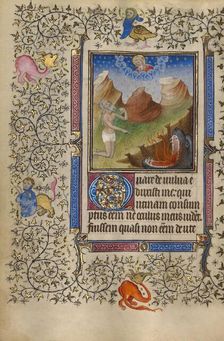 Quare de vulua e
duxisti me: qui
nam consum
ptus eēm ne oculus meus videt.
fuissem quasi non eēm de ute